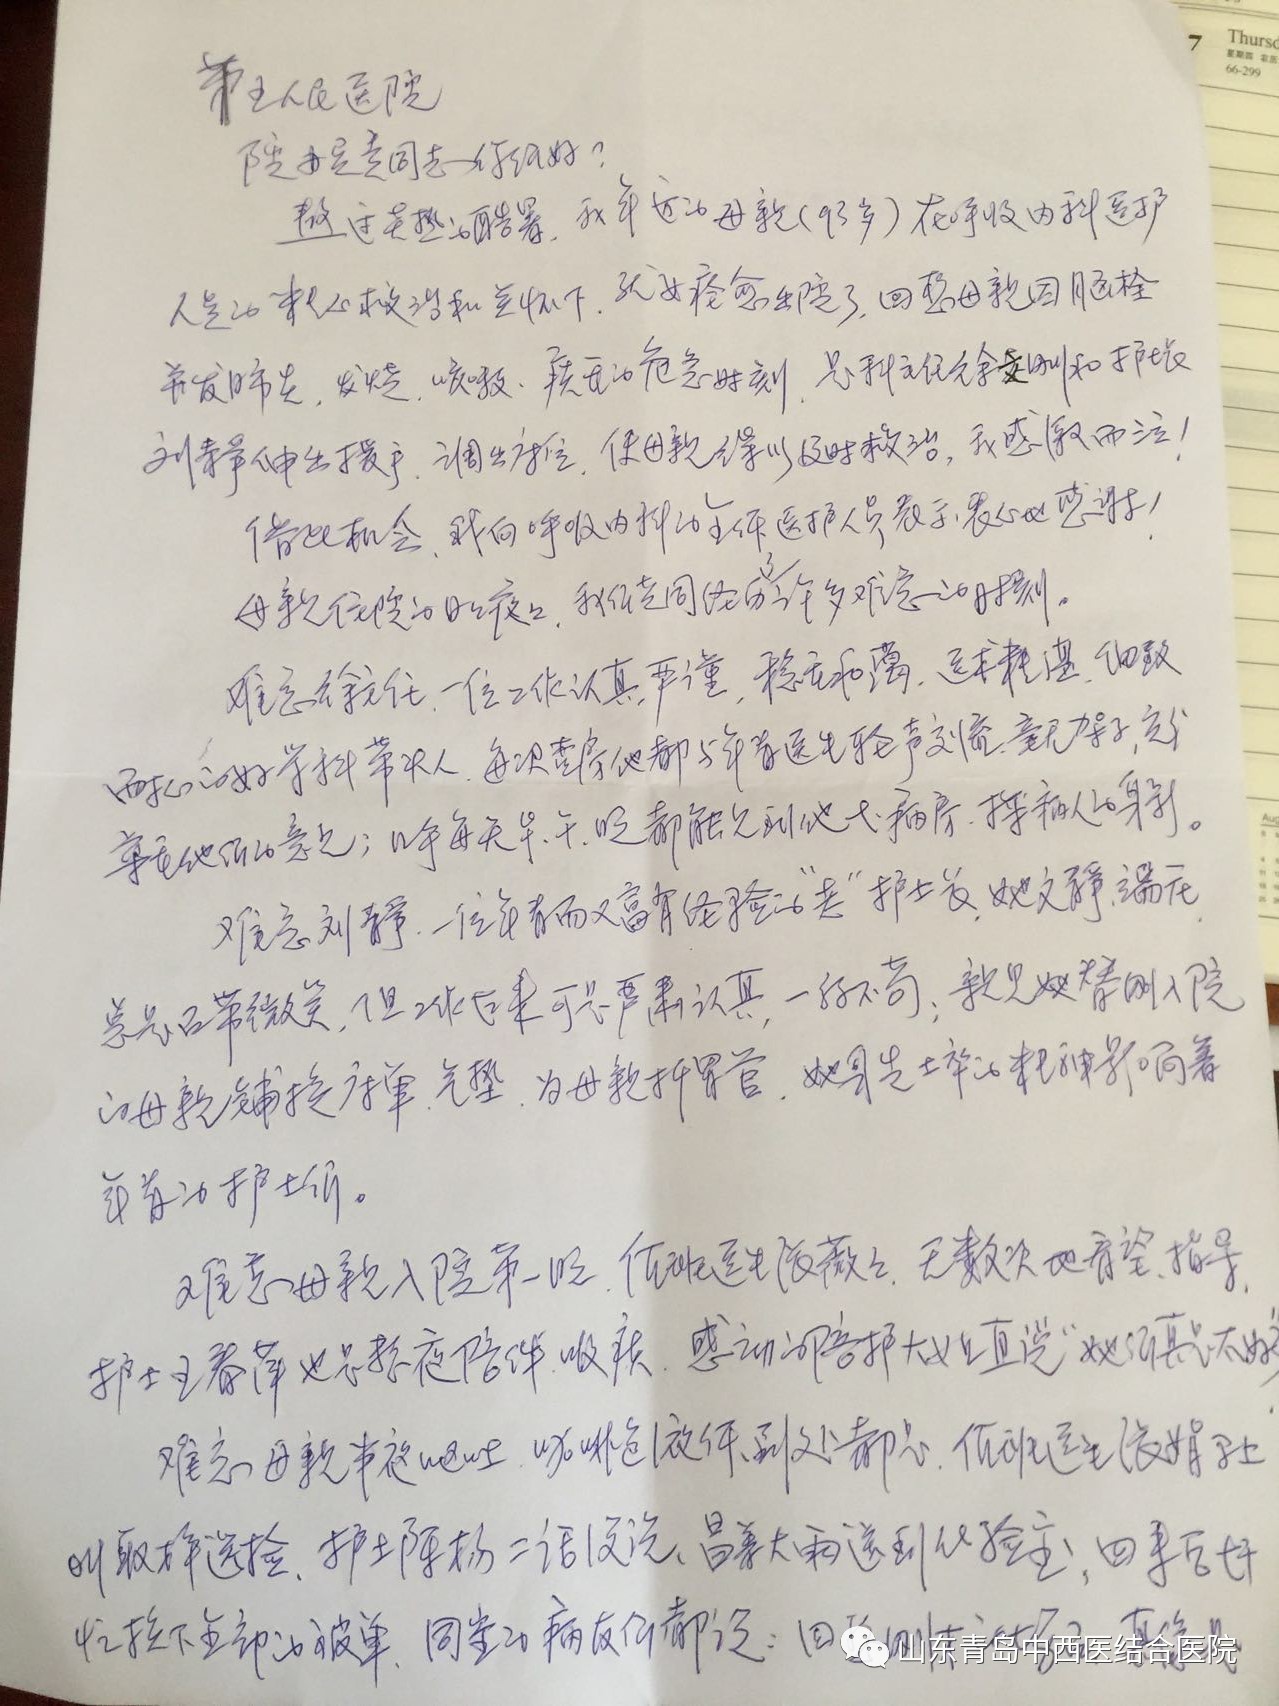 第五人民医院
院办定亮同志你们好？
熬过炎热的酷暑，我年迈的母亲（93岁）在呼吸内科医护
人员的精心救治和关怀下，就要痊愈出院了，回想母亲因脑栓
并发肺炎，发烧，咳嗽、痰的危急时刻，是科主任徐刚和护士长
刘静伸出援手，调出床位，使母亲得以及时救治，我感激而泣！
借此机会，我向呼吸内科的全体医护人员表示衷心地感谢！
母亲住院的日日夜夜，我们共同经历了许多难忘的时刻。
难忘徐主任，一位工作认真严谨，稳重和蔼，医术精湛，细致
而热心的好学科带头人，每次查房他都与年青医生轻声交流、充分
尊重他们的意见；几乎每天早、午、晚都能见到他大病房、病人的身影。
难忘刘静，一位年青而又富有经验的“老”护士长，她文静、端庄，
总是面带微笑，但工作起来可是严肃认真，一丝不苟，亲见她替刚入院
的母亲铺换床单、气垫，为母亲插胃管，她身先士卒的精神影响着
年青的护士们。
难忘母亲入院第一晚，值班医生张薇薇，无数次地看望、指导，
护士王春萍也是整夜陪伴、吸痰，感动的陪护大姐直说“她们真是太好了
难忘母亲半夜呕吐，咖啡色液体到处都是，值班医生张娟马上
叫取样送检，护士陈杨二话没说、冒着大雨送到化验室，回来后
忙换下全部的被单，同室的病友们都说：
山东青岛中西医结合医院
7
Thursd
星期四
66-299
Aug